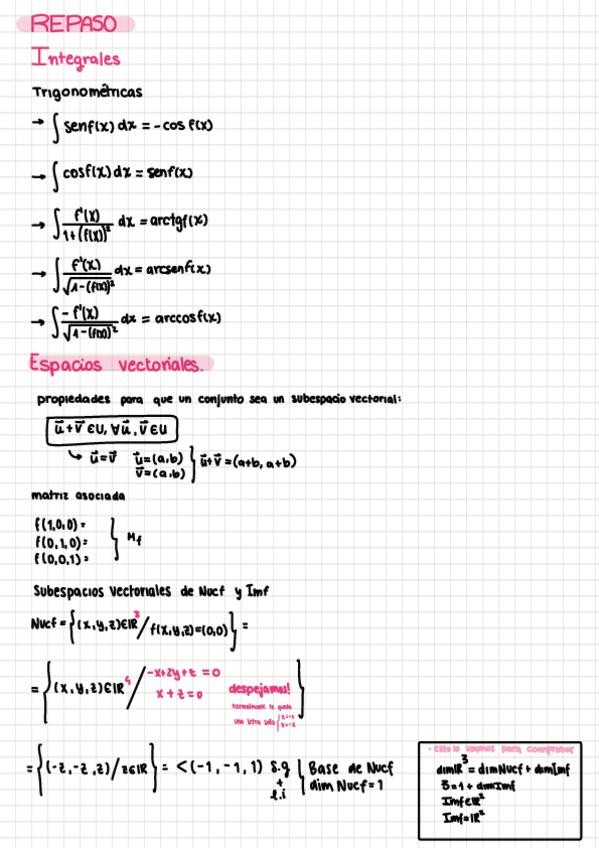 REPASO
Integrales
Trigonométricas
→ ∫ senf(x) dx = -cos f(x)
→ ∫ cosf(x) dx = senf(x)
→ ∫ f'(x) / 1+(f(x))² dx = arctgf(x)
→ ∫ f'(x) / √1-(f(x))² dx = arcsenf(x)
→ ∫ -f'(x) / √1-(f(x))² dx = arccosf(x)
Espacios vectoriales.
propiedades para que un conjunto sea un subespacio vectorial:
u⃗+v⃗ ∈U, ∀u⃗, v⃗ ∈U
↳ u⃗=v⃗ u⃗=(a,b) v⃗=(a,b) } u⃗+v⃗=(a+b, a+b)
matriz asociada
f(1,0,0)=
f(0,1,0)= } Mf
f(0,0,1)=
Subespacios vectoriales de Nucf y Imf
Nucf = {(x,y,z)∈IR³ / f(x,y,z)=(0,0)} =
= {(x,y,z)∈IR⁴ / -x+2y+z=0
x+z=0 despejamos! }
normalmente te queda
una letra sola
= {(-z,-z,z)/z∈IR} = <(-1,-1,1) s.g + l.i } Base de Nucf
dim Nucf=1
· esto lo usamos para comprobar
dimIR³ = dimNucf + dimImf
3=1+dimImf
Imf∈IR²
Imf=IR²